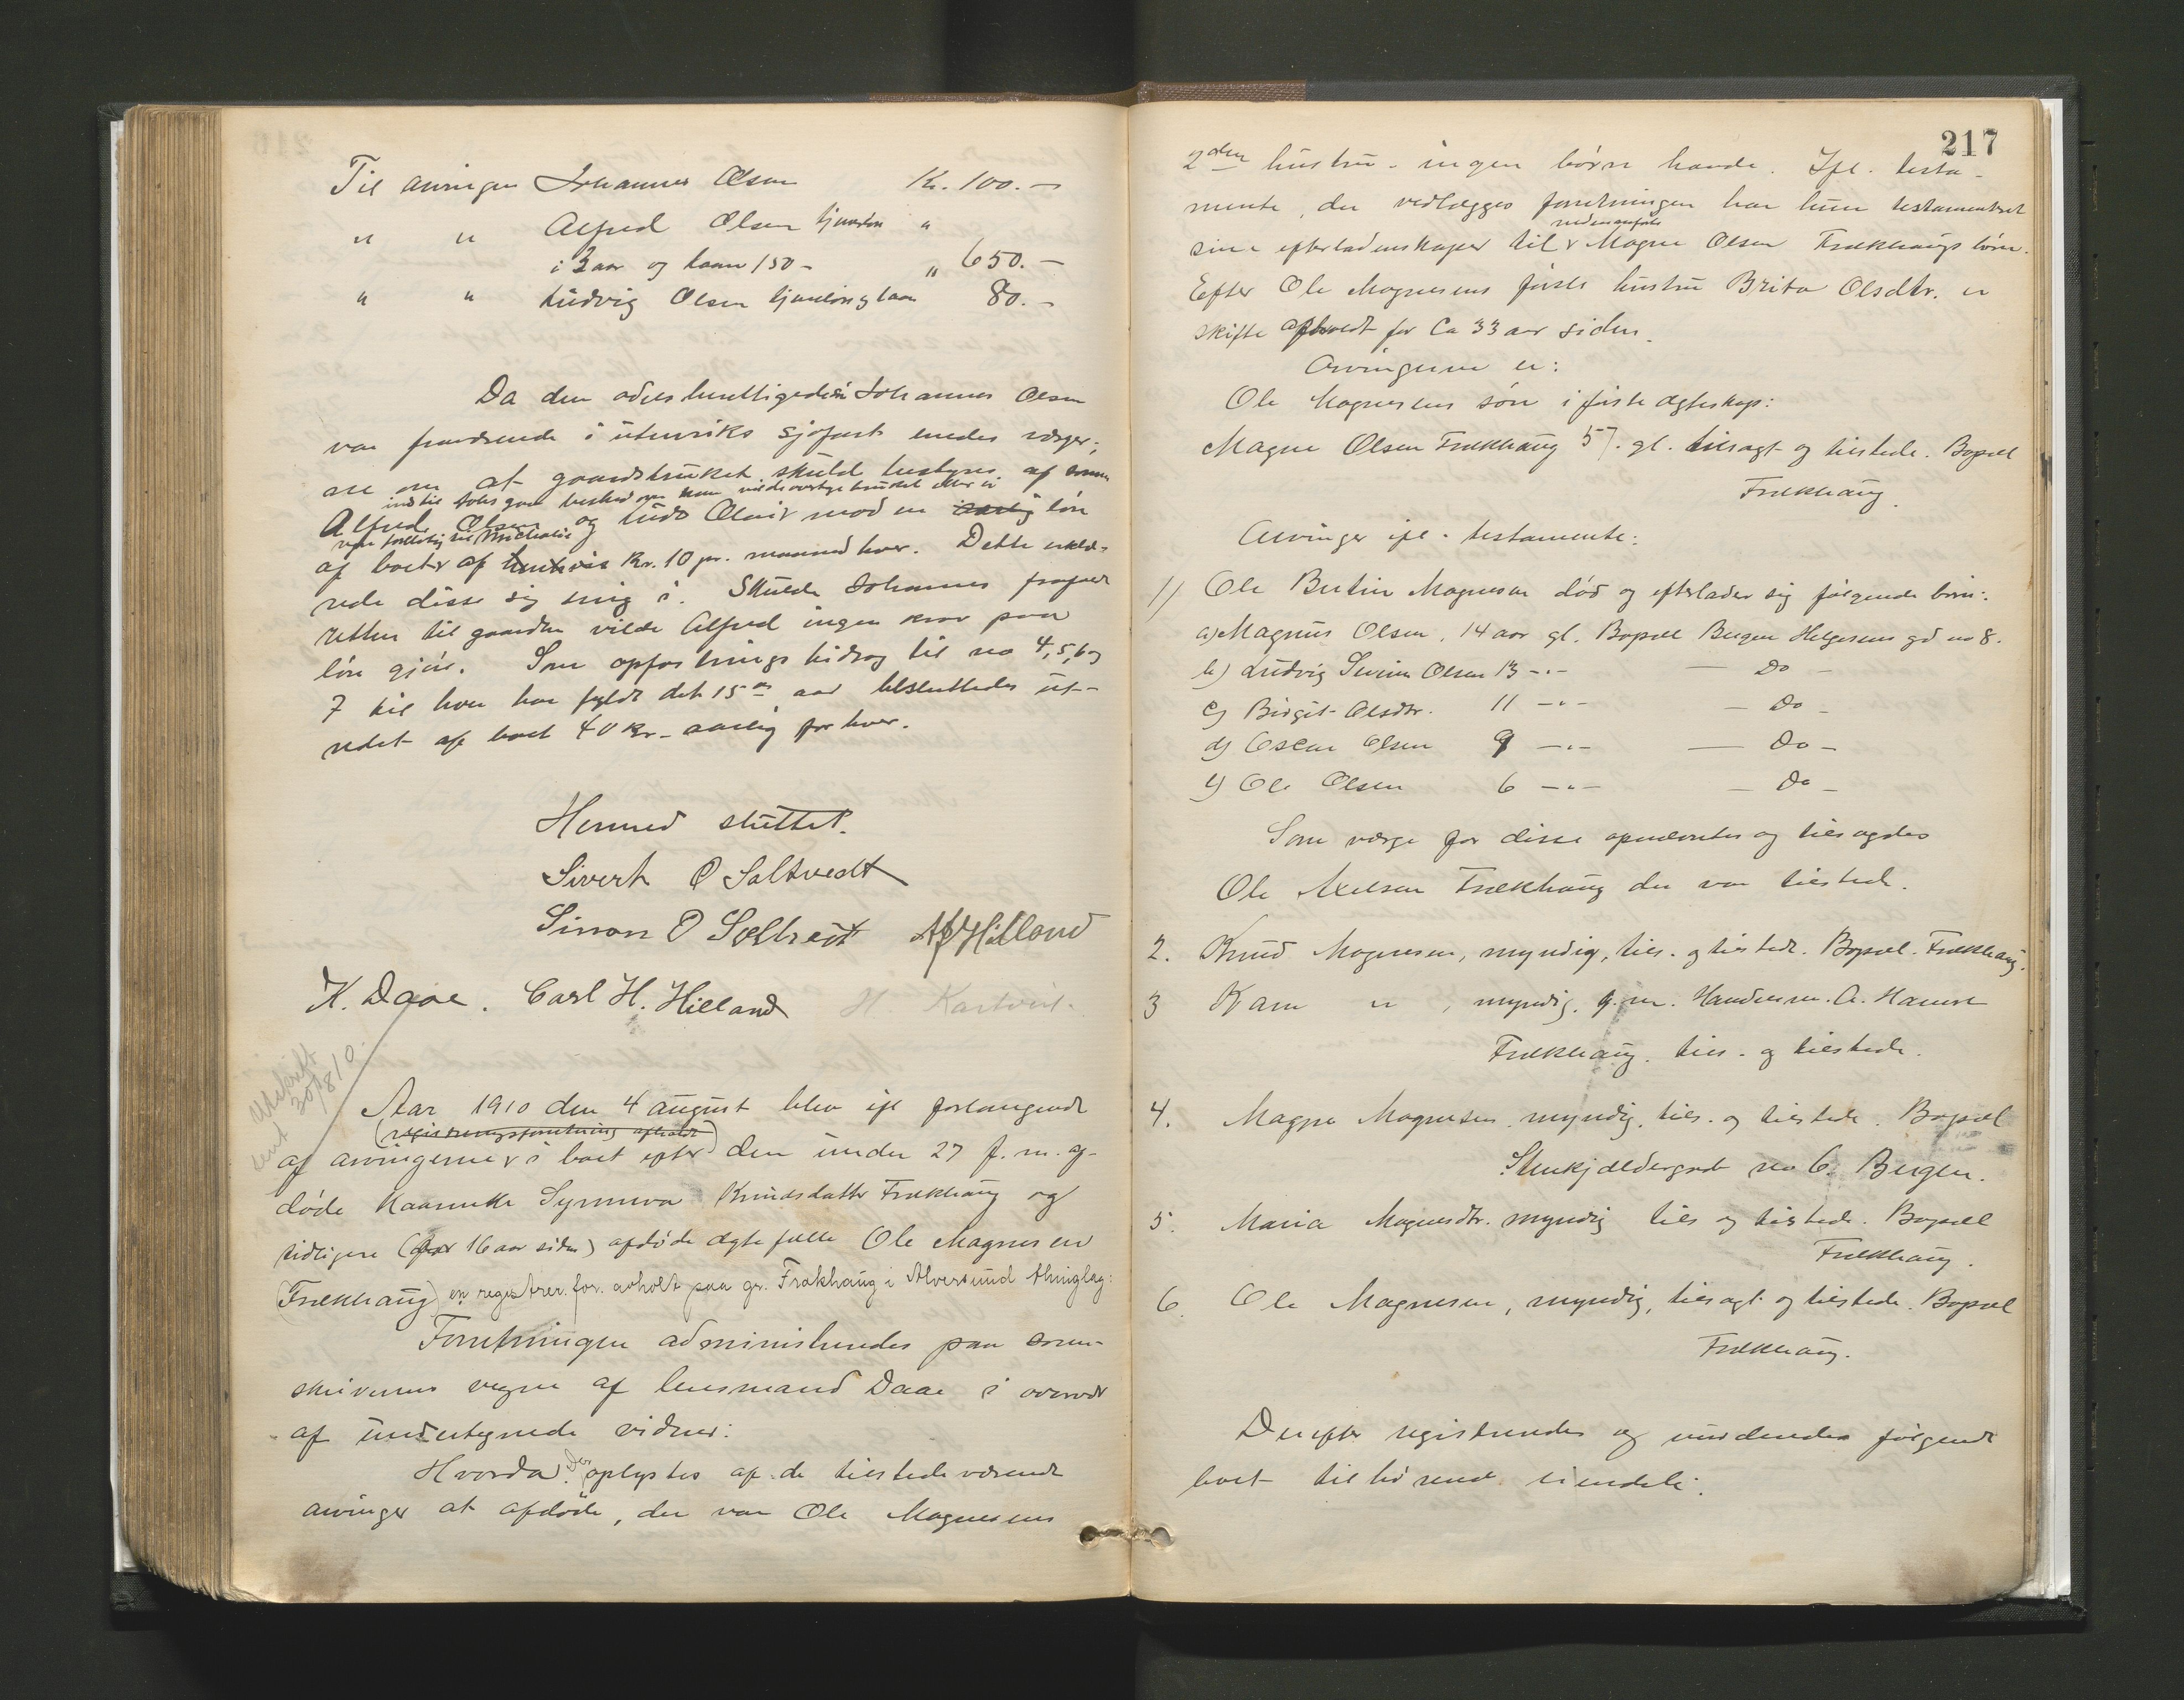 Til arvingen Johannes Olsen Kr. 100.-
" " Alfred Olsen tjeneløn "
i 2 aar og laan 150 - " 650.-
" " Ludvig Olsen tjeneløn og laan 80.-
Da den odelsberettigede søn Johannes Olsen
var fraværende i utenriks sjøfart enedes værger,
ene om at gaardsbruket skulde bestyres af
indtil Johs gav besked om han vilde overtage bruket eller ei
Alfred Olsen og Ludv Olsen mod en aarlig løn
af boet af Kr. 10 pr. maaned hver. Dette erklæ-
rede disse sig enig i. Skulde Johannes frafalde
retten til gaarden vilde Alfred ingen krav paa
løn gjøre. Som opfostringsbidrag til no 4, 5, 6 og
7 til hver har fyldt det 15de aar besluttedes ut-
redet af boet 40 Kr. aarlig for hver.
Hermed sluttet.
Sivert O Saltvedt
Simon O Sæltvedt Hilland
K. Daae. Carl H. Hilland H. Kartveit.
Utskrift
30/8/10.
Aar 1910 den 4 august blev ifl forlangende
(registreringsforretning afholdt)
af arvingerne i boet efter den under 27 f. m. af-
døde kaarenke Synneva Knudsdatter Frækhaug og
tidligere (for 16 aar siden) afdøde ægtefælle Ole Magnesen
(Frækhaug) en registrer. for. avholt paa gr. Frækhaug i Alversund thinglag:
Forretningen administreredes paa soren-
skriverens vegne af lensmand Daae i overvær
af undertegnede vidner:
Hvorda: Der oplystes af de tilstedeværende
arvinger at afdøde, der var Ole Magnesens
217
2den hustru - ingen børn havde. Ifl. testa-
mente, der vedlægges forretningen har hun testamenteret
nedenanførte
sine efterladenskaper til Magne Olsen Frækhaugs børn.
Efter Ole Magnesens første hustru Brita Olsdtr. er
skifte afholdt for Ca 33 aar siden.
Arvingerne er:
Ole Magnesens søn i første ægteskap:
Magne Olsen Frækhaug 57. gl. tilsagt og tilstede. Bopæl
Frækhaug.
Arvinger ifl. testamente:
1) Ole Bertin Magnesen død og efterlader sig følgende børn:
a) Magnus Olsen, 14 aar gl. Bopæl Bergen Helgesens gd no 8.
b) Ludvig Severin Olsen 13 -"- — Do -
c) Birgit Olsdtr. 11 -"- — Do -
d) Oscar Olsen 9 -"- — Do -
e) Ole Olsen 6 -"- — Do -
Som værge for disse opnævntes og tilsagdes
Ole Axelsen Frækhaug der var tilstede.
2. Knud Magnesen, myndig, tils. og tilstede. Bopæl Frækhaug.
3 Kari " , myndig. g. m. Handelsm. A. Hamre
Frækhaug. tils. og tilstede.
4. Magne Magnesen. myndig. tils. og tilstede. Bopæl
Stenkjældergade no 6. Bergen.
5. Maria Magnesdtr. myndig tils og tilstede. Bopæl
Frækhaug.
6. Ole Magnesen, myndig, tilsagt og tilstede. Bopæl
Frækhaug.
Derefter registreredes og vurderedes følgende
boet tilhørende eiendele: